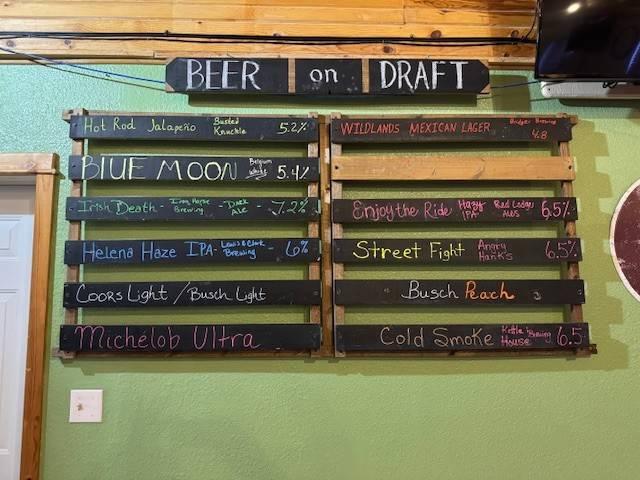 BEER on DRAFT
Hot Rod Jalapeño Busted Knuckle 5.2%
BLUE MOON Belgium White 5.4%
Irish Death - Iron Horse Brewing - Dark Ale - 7.2%
Helena Haze IPA - Lewis & Clark Brewing - 6%
Coors Light / Busch Light
Michelob Ultra
WILDLANDS MEXICAN LAGER Bridger Brewing 4.8
Enjoy the Ride Hazy IPA Red Lodge Ales 6.5%
Street Fight Angry Hank's 6.5%
Busch Peach
Cold Smoke Kettle House Brewing 6.5